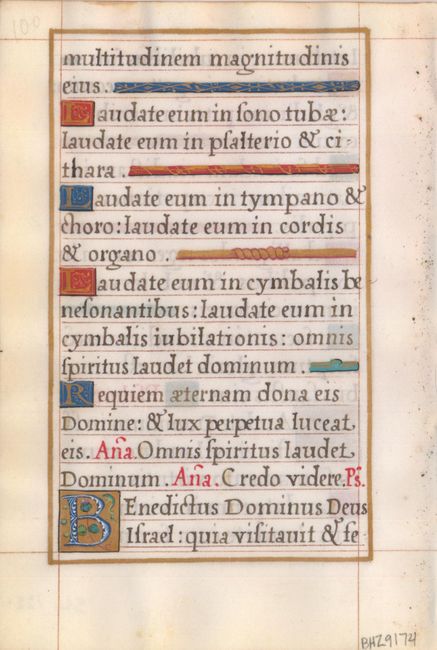 100
multitudinem magnitudinis
eius.
Laudate eum in ſono tubæ:
laudate eum in pſalterio & ci-
thara.
Laudate eum in tympano &
choro: laudate eum in cordis
& organo.
Laudate eum in cymbalis be
neſonantibus: laudate eum in
cymbalis iubilationis: omnis
ſpiritus laudet dominum.
Requiem æternam dona eis
Domine: & lux perpetua luceat
eis. Aña. Omnis ſpiritus laudet
Dominum. Aña. Credo videre. Pſ.
BENedictus Dominus Deus
Israel: quia viſitauit & fe-
BHZ9174